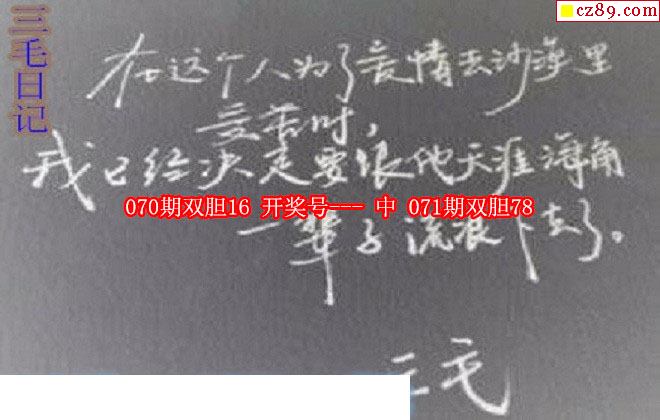 cz89.com
三毛日记
在这个人为了爱情去沙漠里
受苦时,
我已经决定要跟他天涯海角
070期双胆16 开奖号--- 中 071期双胆78
一辈子流浪下去了。
三毛